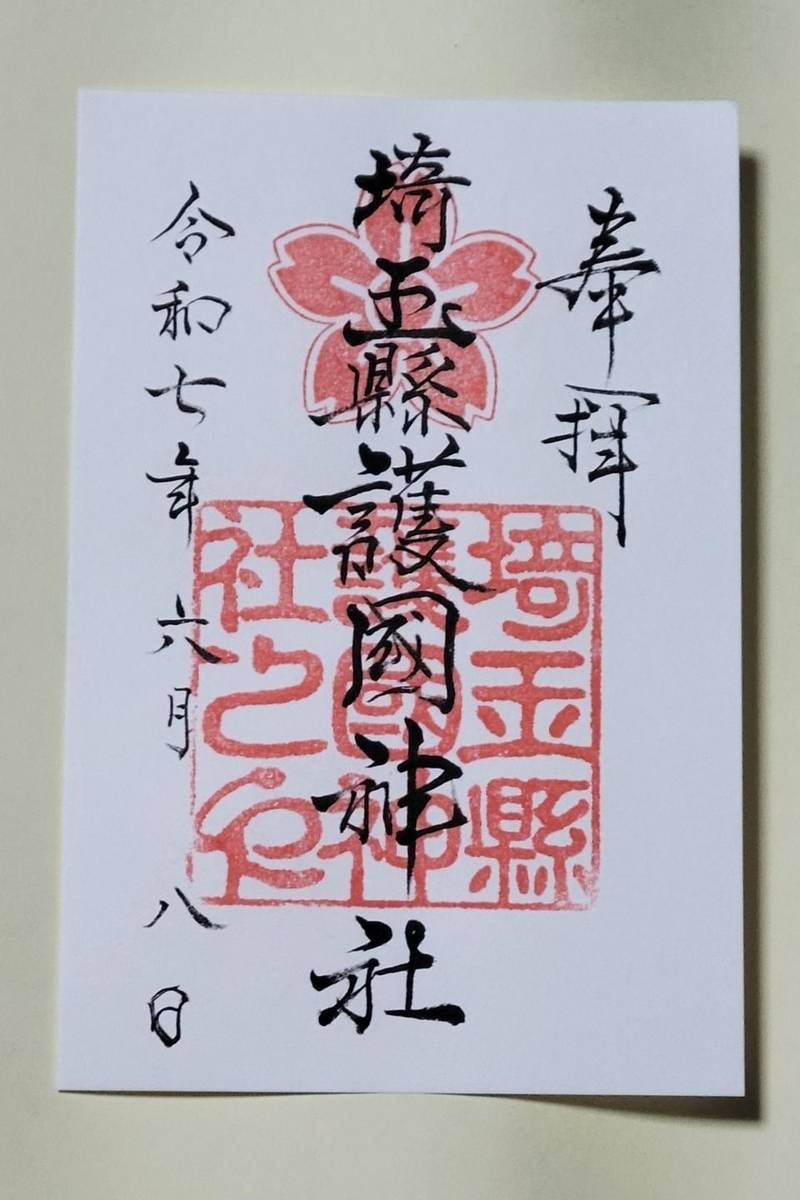 奉拝
埼玉縣護國神社
埼玉縣
護國神
社之印
令和七年 六月 八日